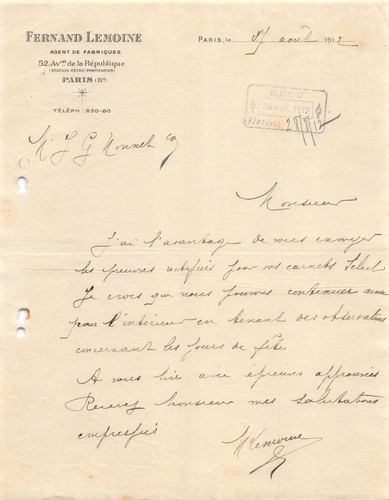 FERNAND LEMOINE
AGENT DE FABRIQUES
52, Avue de la République
(SECTION MÉTRO-PARMENTIER)
PARIS (XIe)
TÉLÉPH : 930-80
PARIS, le 27 août 1912
REÇU
28 AOU 1912
RÉPONDU 28/8/12
Mr J G Monnet Co
Monsieur
J'ai l'avantage de vous envoyer
les épreuves rectifiées pour vos carnets Select
Je crois que nous pouvons continuer ainsi
pour l'intérieur en tenant des observations
concernant les jours de fête.
A vous lire avec épreuves approuvées
Recevez monsieur mes salutations
empressées
Lemoine